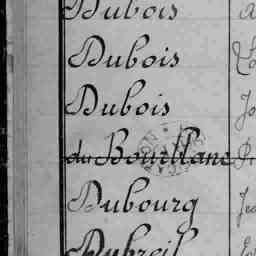 Dubois
Dubois
Dubois
du Bourblanc
Dubourg
Dubreil